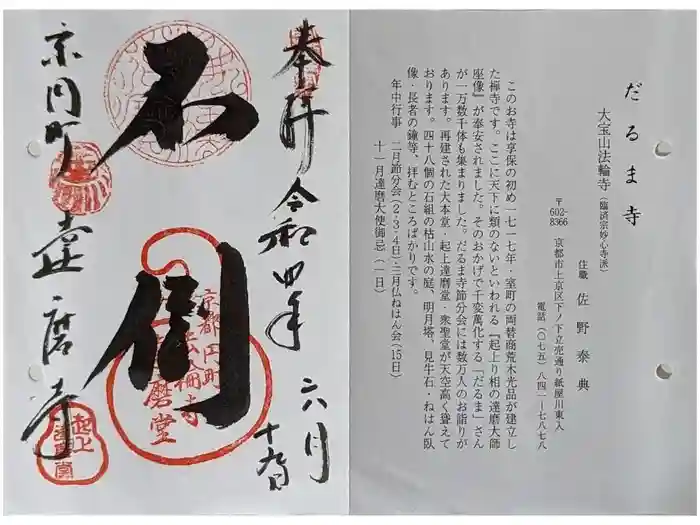 だるま寺
大宝山法輪寺（臨済宗妙心寺派）
住職 佐野泰典
〒602-8366 京都市上京区下ノ下立売通り紙屋川東入
電話（〇七五）八四一ー七八七八
このお寺は享保の初め一七一七年・室町の両替商荒木光品が建立し
た禅寺です。ここに天下に類のないといわれる『起上り相の達磨大師
座像』が奉安されました。そのおかげで千変萬化する「だるま」さん
が一万数千体も集まりました。だるま寺節分会には数万人のお詣りが
あります。再建された大本堂・起上達磨堂・衆聖堂が天空高く聳えて
おります。四十八個の石組の枯山水の庭、明月塔、見牛石・ねはん臥
像・長者の鐘等、拝むところばかりです。
年中行事 二月節分会（2・3・4日）・三月仏ねはん会（15日）
十一月達磨大使御忌（一日）
奉拝 令和四年 六月十九日
不倒
京都円町
法輪寺
達磨堂
京円町 達磨寺
起上
達磨堂